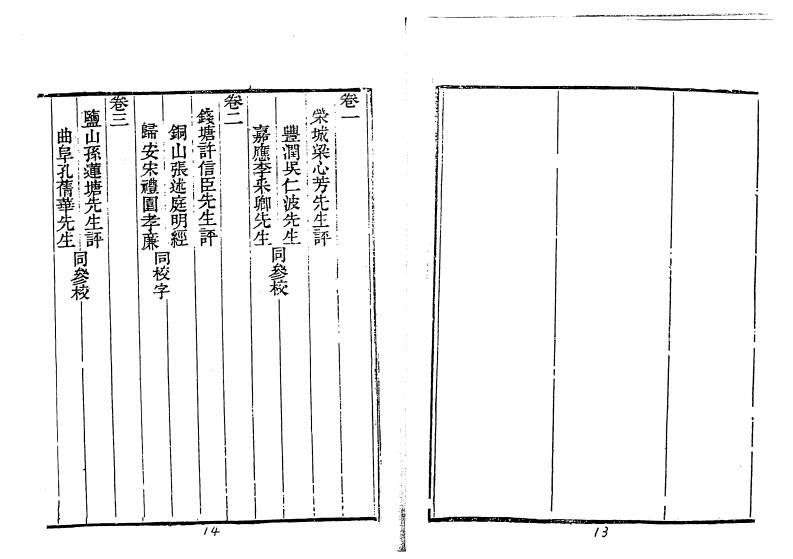 卷一
榮城梁心芳先生評
豐潤吳仁波先生
嘉應李采卿先生
同參校
卷二
錢塘許信臣先生評
銅山張述庭明經
歸安宋禮園孝廉
同校字
卷三
鹽山孫蓮塘先生評
曲阜孔蒨華先生
同參校
14
13